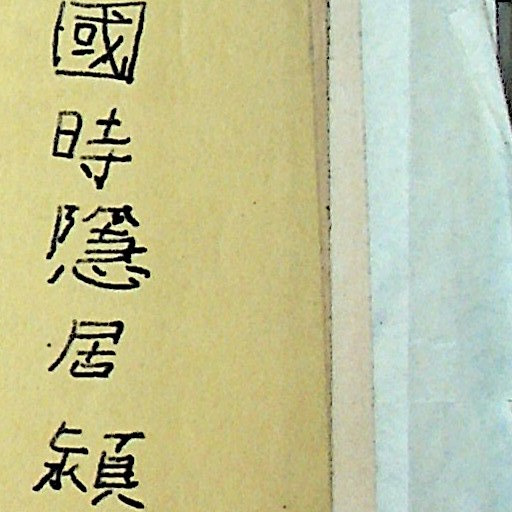 國時隱居潁